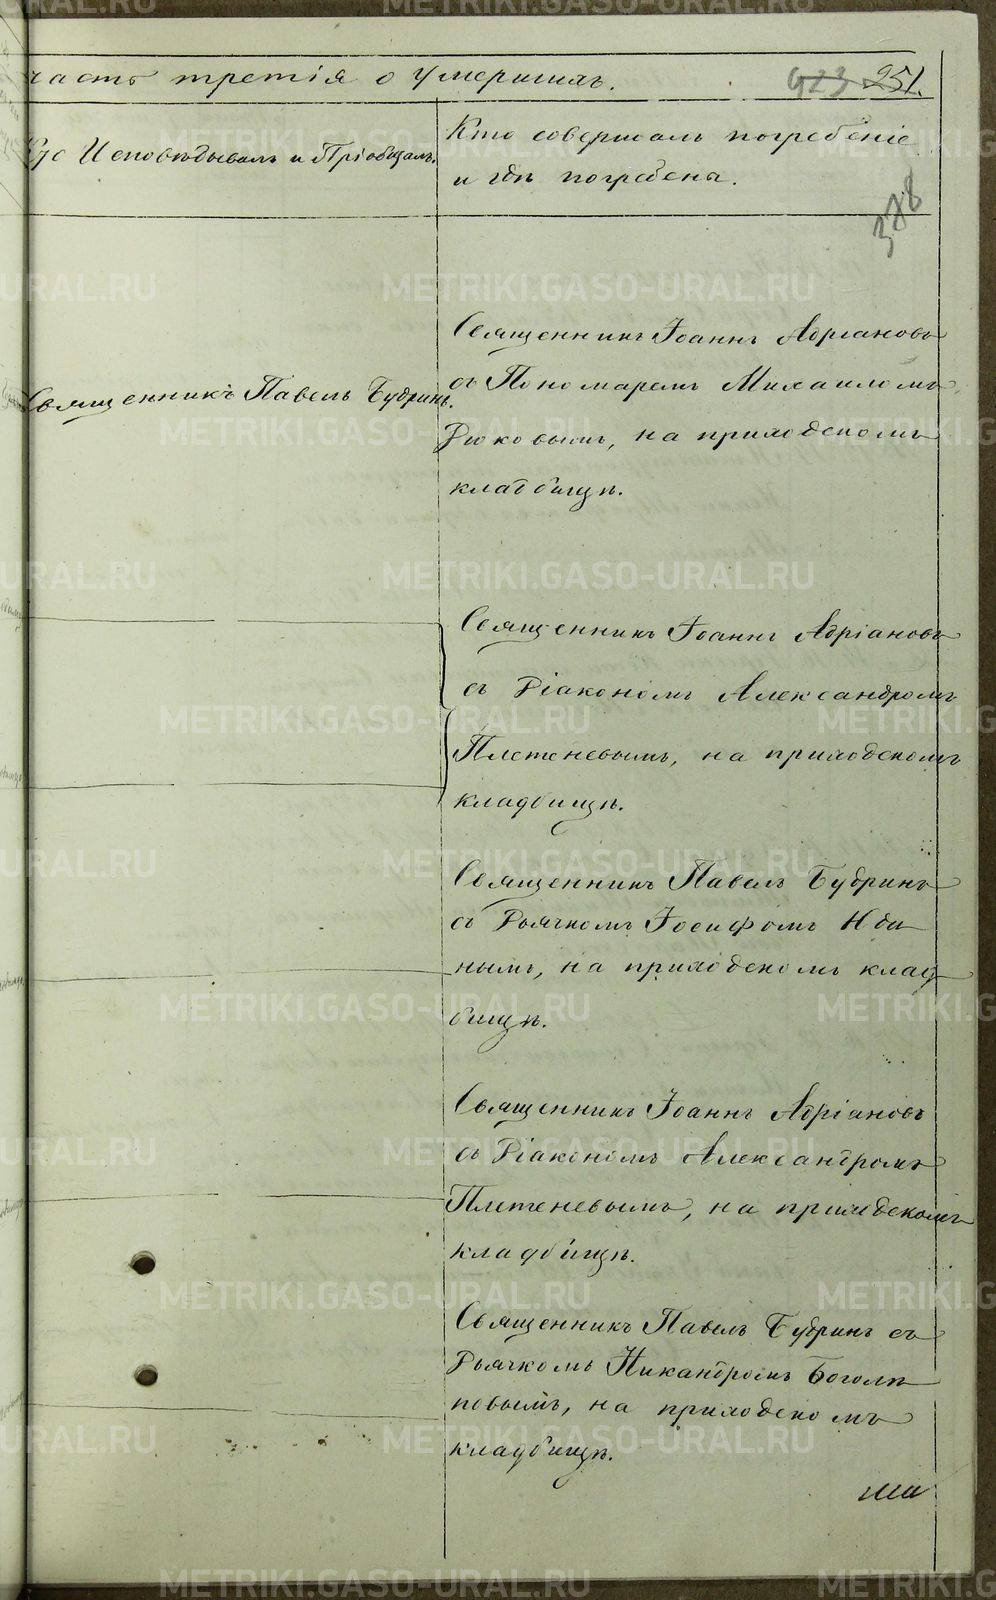 часть третія о умершихъ.
423 251.
Кто Исповѣдывалъ и Пріобщалъ.
Кто совершалъ погребеніе
и гдѣ погребены.
378
Священникъ Павелъ Бубринъ.
Священникъ Іоаннъ Адріановъ
съ Пономаремъ Михаиломъ
Рюковымъ, на приходскомъ
кладбищѣ.
Священникъ Іоаннъ Адріановъ
съ Діакономъ Александромъ
Плетеневымъ, на приходскомъ
кладбищѣ.
Священникъ Павелъ Бубринъ
съ Дьячкомъ Іосифомъ
нымъ, на приходскомъ клад
бищѣ.
Священникъ Іоаннъ Адріановъ
съ Діакономъ Александромъ
Плетеневымъ, на приходскомъ
кладбищѣ.
Священникъ Павелъ Бубринъ съ
Дьячкомъ Никандромъ Боголѣ
повымъ, на приходскомъ
кладбищѣ.
METRIKI.GASO-URAL.RU